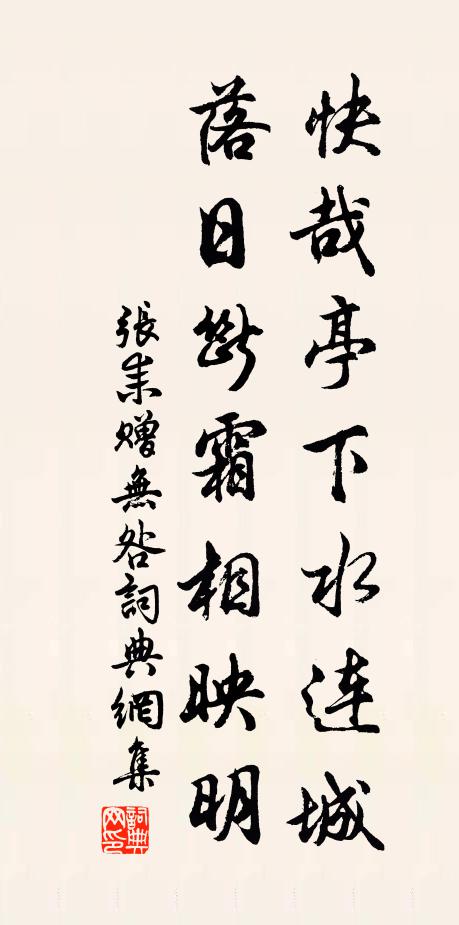 快哉亭下水連城
落日斷霜相映明
張耒贈無咎詞典網集
詞典
网印